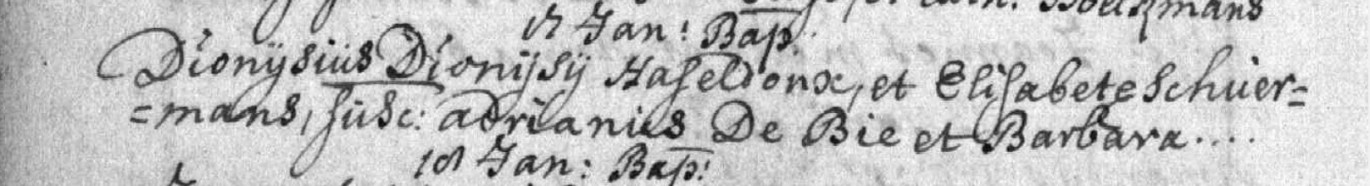 17 Jan: Bap:
Dionÿsius Dionÿsÿ Haseldonx, et Elisabete Schuer=
=mans, susc: adrianus De Bie et Barbara....
18 Jan: Bap: